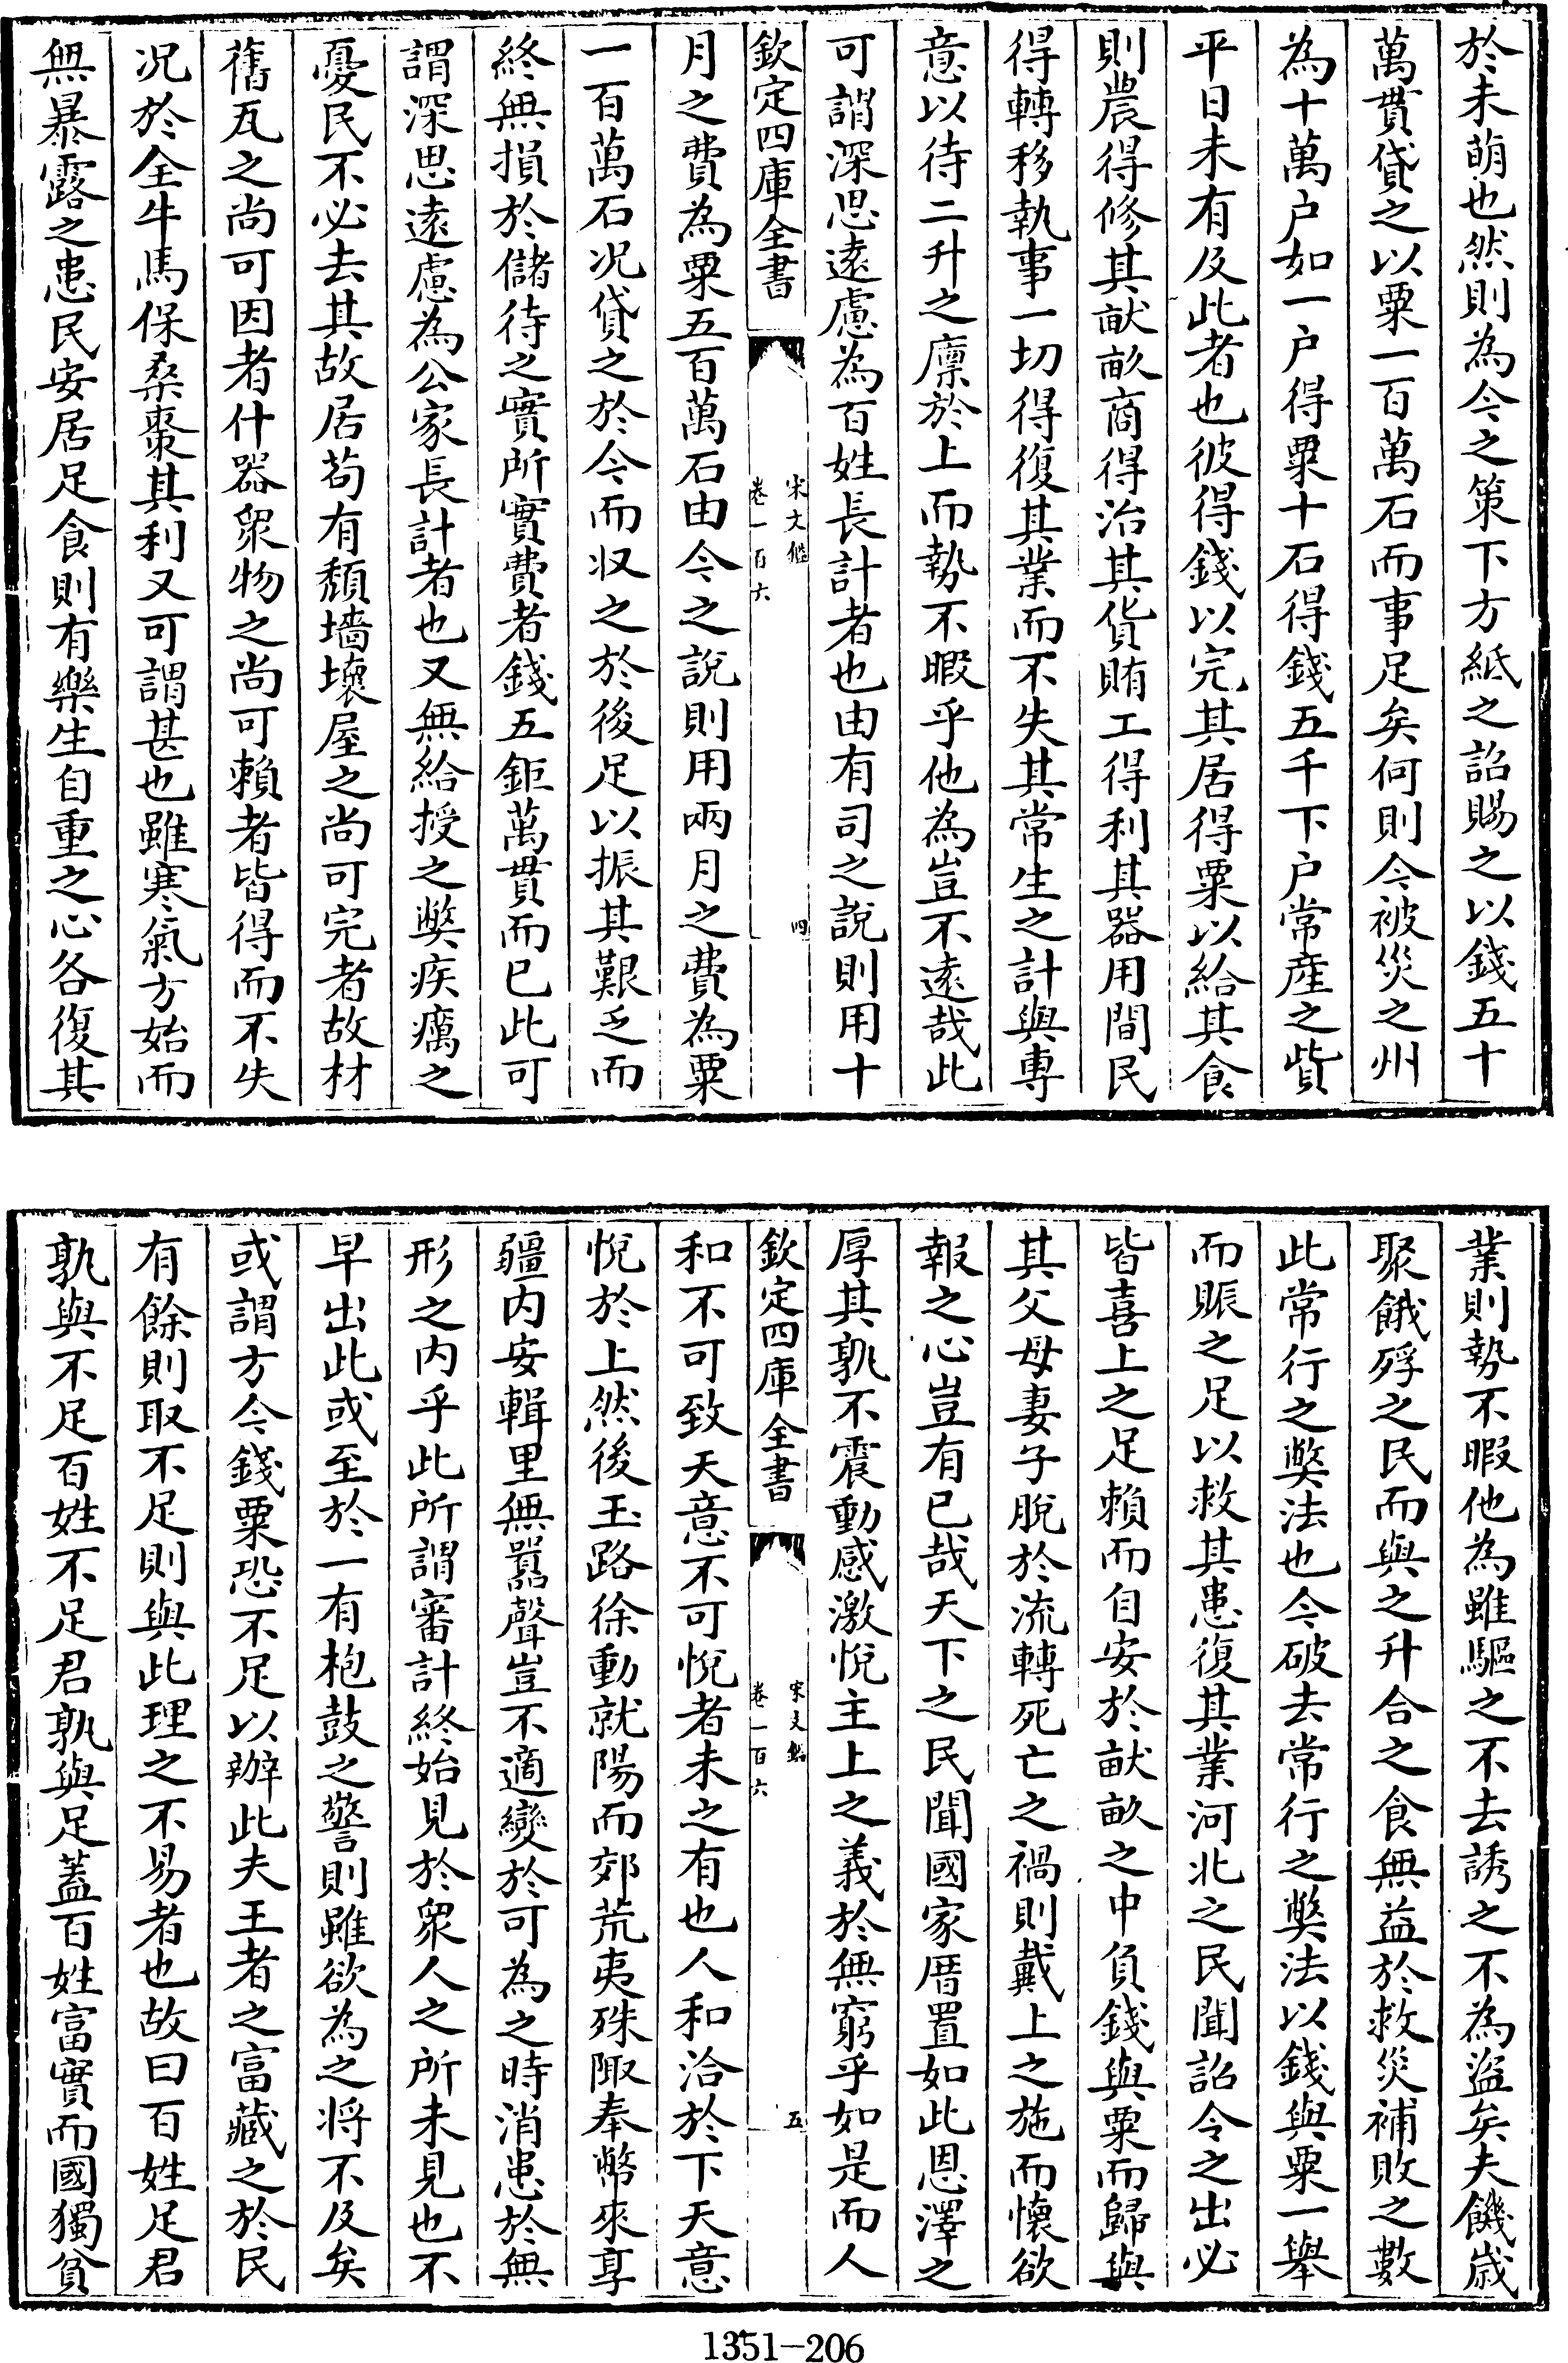 於未萌也然則為今之策下方紙之詔賜之以錢五十
萬貫貸之以粟一百萬石而事足矣何則今被災之州
為十萬户如一户得粟十石得錢五千下户常産之貲
平日未有及此者也彼得錢以完其居得粟以給其食
則農得修其畎畝商得治其貨賄工得利其器用閒民
得轉移執事一切得復其業而不失其常生之計與專
意以待二升之廩於上而勢不暇乎他為豈不逺哉此
可謂深思逺慮為百姓長計者也由有司之說則用十
欽定四庫全書
宋文鑑
卷一百六
四
月之費為粟五百萬石由今之說則用兩月之費為粟
一百萬石况貸之於今而収之於後足以振其艱乏而
終無損於儲待之實所實費者錢五鉅萬貫而已此可
謂深思逺慮為公家長計者也又無給授之弊疾癘之
憂民不必去其故居苟有頽墻壞屋之尚可完者故材
舊瓦之尚可因者什器衆物之尚可賴者皆得而不失
况於全牛馬保桑棗其利又可謂甚也雖寒氣方始而
無暴露之患民安居足食則有樂生自重之心各復其
業則勢不暇他為雖驅之不去誘之不為盜矣夫饑歳
聚餓殍之民而與之升合之食無益於救災補敗之數
此常行之弊法也今破去常行之弊法以錢與粟一舉
而賑之足以救其患復其業河北之民聞詔令之出必
皆喜上之足賴而自安於畎畝之中負錢與粟而歸與
其父母妻子脫於流轉死亡之禍則戴上之施而懷欲
報之心豈有已哉天下之民聞國家厝置如此恩澤之
厚其孰不震動感激悅主上之義於無窮乎如是而人
欽定四庫全書
宋文鑑
卷一百六
五
和不可致天意不可悅者未之有也人和洽於下天意
悅於上然後玉路徐動就陽而郊荒夷殊陬奉幣來享
疆内安輯里無嚻聲豈不適變於可為之時消患於無
形之内乎此所謂審計終始見於衆人之所未見也不
早出此或至於一有枹鼓之警則雖欲為之將不及矣
或謂方今錢粟恐不足以辦此夫王者之富藏之於民
有餘則取不足則與此理之不易者也故曰百姓足君
孰與不足百姓不足君孰與足蓋百姓富實而國獨貧
1351-206